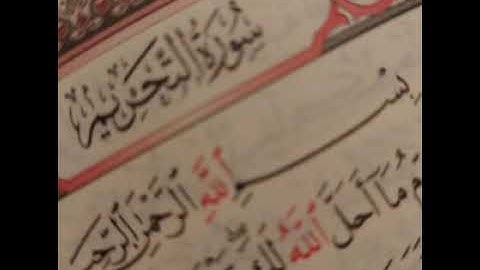 سُورَةُ التَّحْرِيمِ
بِسْمِ اللَّهِ الرَّحْمَٰنِ الرَّحِيمِ
مَا أَحَلَّ اللَّهُ لَكَ